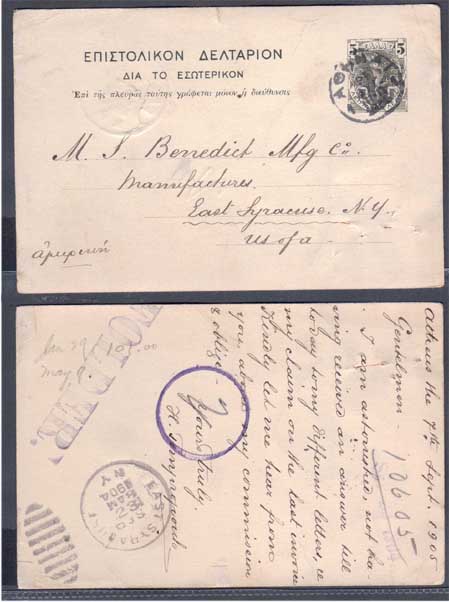 ΕΠΙΣΤΟΛΙΚΟΝ ΔΕΛΤΑΡΙΟΝ
ΔΙΑ ΤΟ ΕΣΩΤΕΡΙΚΟΝ
Ἐπὶ τῆς πλευρᾶς ταύτης γράφεται μόνον ἡ διεύθυνσις
5 5
ΑΘΗΝΑΙ
M. S. Benedict Mfg Co.
Manufactures.
East Syracuse. N.Y.
US of a
ἀμερικὴ
Athens the 7th Sept. 1905
Gentelmen -
I am astonished, not ha-
ving received an answer till
today to my different letters, re
my claim on the last invoice
Kindly let me hear from
you about my commission
& oblige
Yours truly.
10605
FOLDER.
109.00
May 9.
EAST SYRACUSE
N.Y.
1904